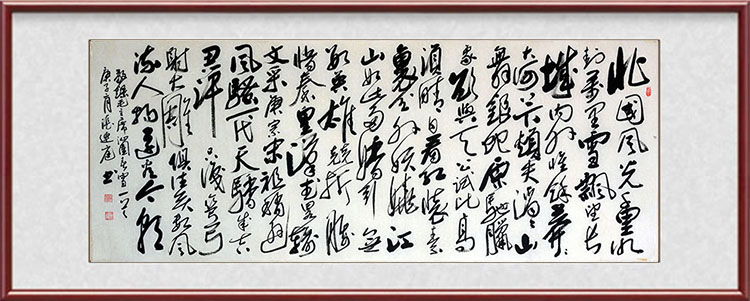 北国风光千里冰
封万里雪飘望长
城内外惟余莽莽
大河上下顿失滔滔山
舞银蛇原驰蜡
象欲与天公试比高
须晴日看红装素
裹分外妖娆江
山如此多娇引无
数英雄竞折腰
惜秦皇汉武略输
文采唐宗宋祖稍逊
风骚一代天骄成吉
思汗只识弯弓
射大雕俱往矣数风
流人物还看今朝
毛主席沁园春雪一首
庚子月 书